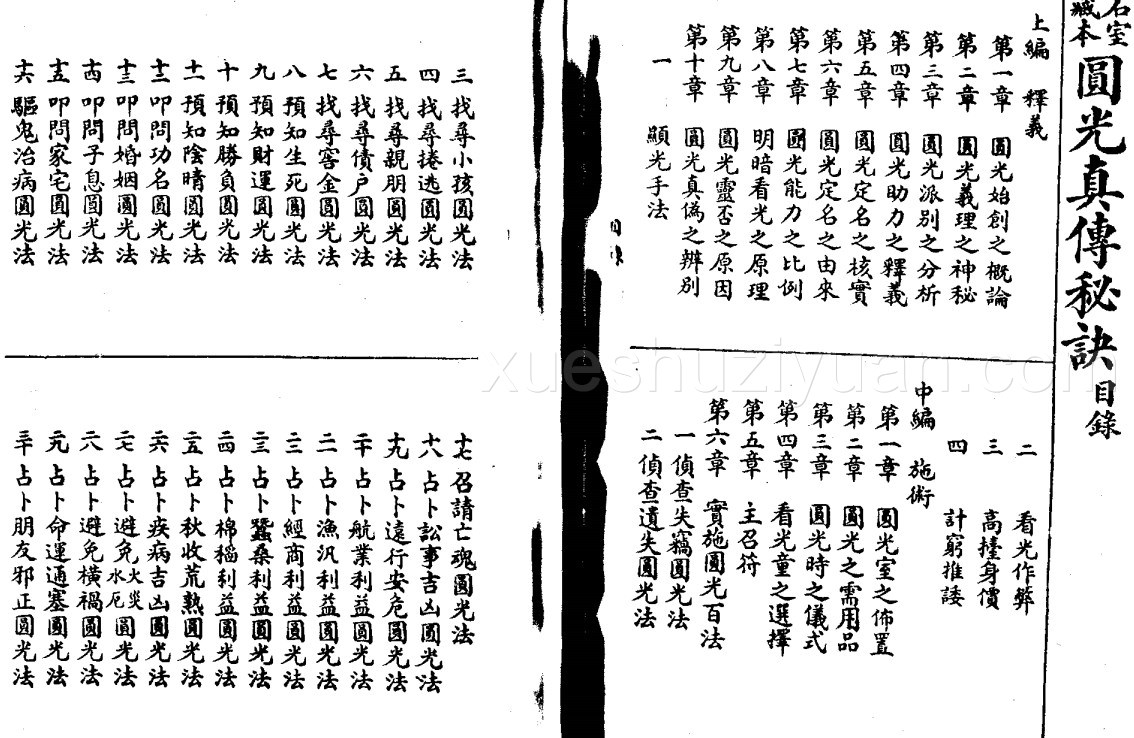 石室藏本 圓光真傳秘訣 目錄
上編 釋義
第一章 圓光始創之概論
第二章 圓光義理之神秘
第三章 圓光派別之分析
第四章 圓光助力之釋義
第五章 圓光定名之核實
第六章 圓光定名之由來
第七章 圓光能力之比例
第八章 明暗看光之原理
第九章 圓光靈否之原因
第十章 圓光真偽之辨別
一 顯光手法
二 看光作弊
三 高擡身價
四 計窮推諉
中編 施術
第一章 圓光室之佈置
第二章 圓光之需用品
第三章 圓光時之儀式
第四章 看光童之選擇
第五章 主召符
第六章 實施圓光百法
一 偵查失竊圓光法
二 偵查遺失圓光法
目錄
三 找尋小孩圓光法
四 找尋捲逃圓光法
五 找尋親朋圓光法
六 找尋債户圓光法
七 找尋窖金圓光法
八 預知生死圓光法
九 預知財運圓光法
十 預知勝負圓光法
十一 預知陰晴圓光法
十二 叩問功名圓光法
十三 叩問婚姻圓光法
十四 叩問子息圓光法
十五 叩問家宅圓光法
十六 驅鬼治病圓光法
十七 召請亡魂圓光法
十八 占卜訟事吉凶圓光法
十九 占卜遠行安危圓光法
二十 占卜航業利益圓光法
二一 占卜漁汎利益圓光法
二二 占卜經商利益圓光法
二三 占卜蠶桑利益圓光法
二四 占卜棉稻利益圓光法
二五 占卜秋收荒熟圓光法
二六 占卜疾病吉凶圓光法
二七 占卜避免火災水厄圓光法
二八 占卜避免橫禍圓光法
二九 占卜命運通塞圓光法
三十 占卜朋友邪正圓光法
xueshuziyuan.com